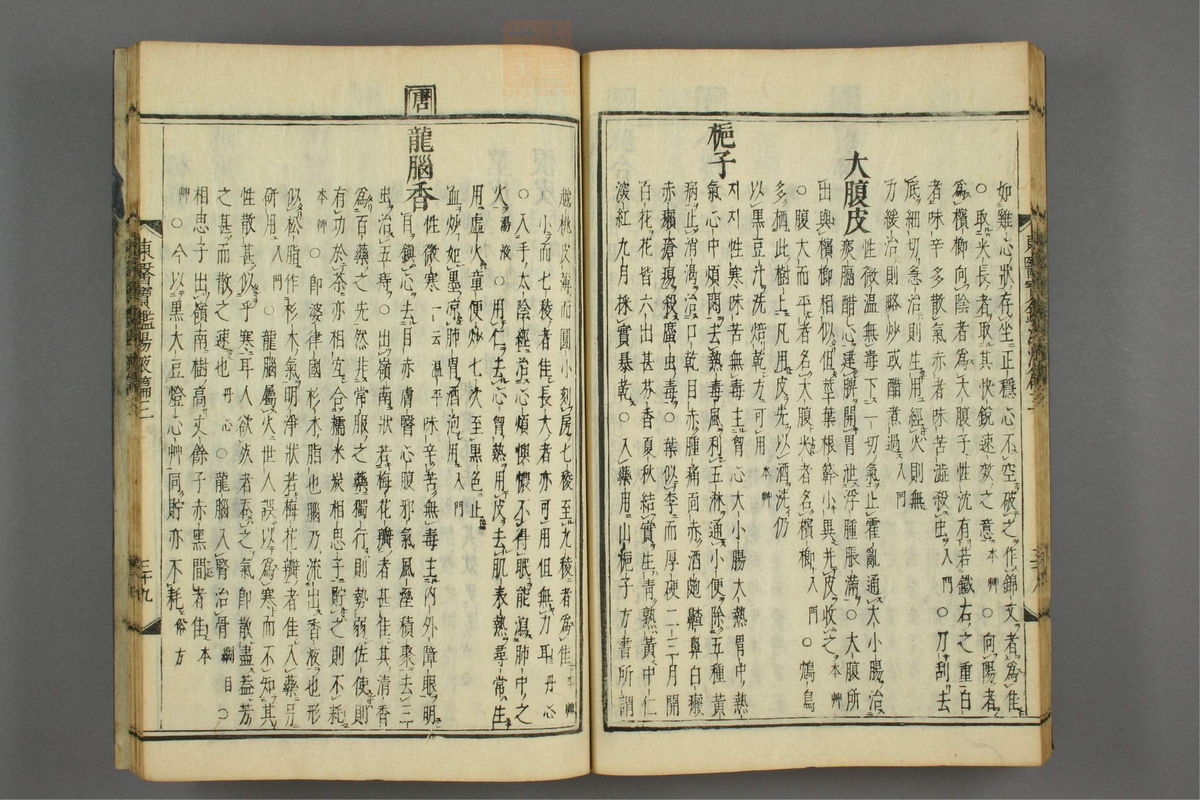 如雞心狀存坐正穩心不空破之作錦文者爲佳
○取尖長者取其快銳速效之意本艸○向陽者
爲檳榔向陰者爲大腹子性沈有若鐵石之重白
者味辛多散氣赤者味苦澁殺虫入門○刀刮去
底細切急治則生用經火則無
力緩治則略炒或醋煮過入門
大腹皮
性微溫無毒下一切氣止霍亂通大小腸治
痰膈醋心建脾開胃泄浮腫脹滿○大腹所
出與檳榔相似但莖葉根幹小異并皮收之本艸
○腹大而平者名大腹尖者名檳榔入門○鴆鳥
多栖此樹上凡用皮先以酒洗仍
以黑豆汁洗焙乾方可用本艸
梔子
지지性寒味苦無毒主胷心大小腸大熱胃中熱
氣心中煩悶去熱毒風利五淋通小便除五種黃
病止消渴治口乾目赤腫痛面赤酒皰齄鼻白癩
赤癩瘡瘍殺䗪虫毒○葉似李而厚硬二三月開
百花花皆六出甚芬香夏秋結實生靑熟黃中仁
深紅九月採實暴乾○入藥用山梔子方書所謂
越桃皮薄而圓小刻房七稜至九稜者爲佳本艸
○小而七稜者佳長大者亦可用但無力耳丹心
○入手太陰經治心煩懊憹不得眠能瀉肺中之
火湯液○用仁去心胷熱用皮去肌表熱尋常生
用虛火童便炒七次至黑色止
血炒如墨凉肺胃酒泡用入門
唐
龍腦香
性微寒一云溫平味辛苦無毒主內外障眼明
目鎭心去目赤膚瞖心腹邪氣風溼積聚去三
虫治五痔○出嶺南狀若梅花瓣者甚佳其淸香
爲百藥之先然非常服之藥獨行則勢弱佐使則
有功於茶亦相宜合糯米炭相思子貯之則不耗
本艸○卽婆律國杉木脂也腦乃流出香液也形
似松脂作杉木氣明淨狀若梅花瓣者佳入藥另
硏用入門○龍腦屬火世人誤以爲寒而不知其
性散甚似乎寒耳人欲次者呑之氣卽散盡盖芳
之甚而散之速也丹心○龍腦入腎治骨綱目○
相思子出嶺南樹高丈餘子赤黑間者佳本
艸○今以黑大豆燈心艸同貯亦不耗俗方
東醫寶鑑湯液篇三
三十九